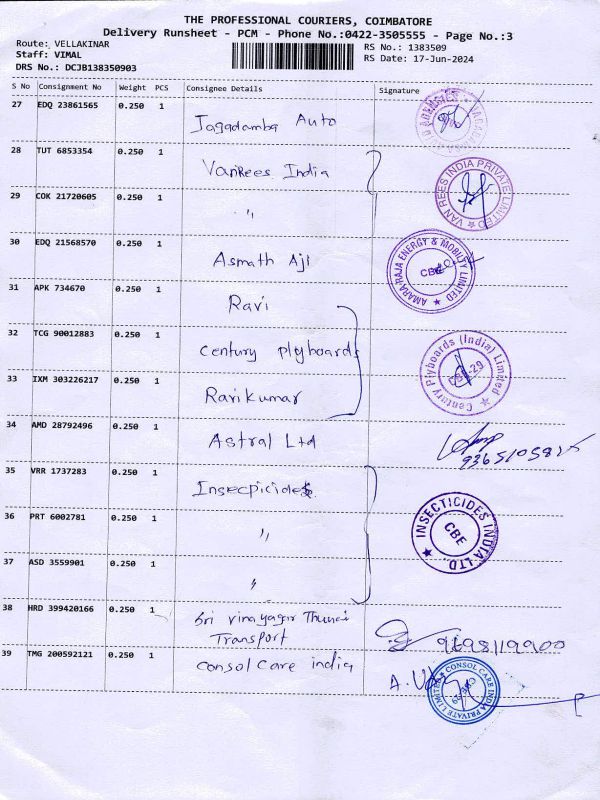 THE PROFESSIONAL COURIERS, COIMBATORE
Delivery Runsheet - PCM - Phone No.:0422-3505555 - Page No.:3
Route: VELLAKINAR
RS No.: 1383509
Staff: VIMAL
RS Date: 17-Jun-2024
DRS No.: DCJB138350903
S No Consignment No Weight PCS Consignee Details Signature
27 EDQ 23861565 0.250 1 Jagadamba Auto
28 TUT 6853354 0.250 1 VanRees India
VAN REES INDIA PRIVATE LIMITED
29 COK 21720605 0.250 1 "
30 EDQ 21568570 0.250 1 Asmath Aji
AMARA RAJA ENERGY & MOBILITY LIMITED
CBE
31 APK 734670 0.250 1 Ravi
32 TCG 90012883 0.250 1 Century plyboards
Century Plyboards (India) Limited
33 IXM 303226217 0.250 1 Ravikumar
34 AMD 28792496 0.250 1 Astral Ltd
35 VRR 1737283 0.250 1 Insecpicides
36 PRT 6002781 0.250 1 "
INSECTICIDES INDIA LTD.
CBE
37 ASD 3559901 0.250 1 "
38 HRD 399420166 0.250 1 Sri vinayagar Thunai
Transport
39 TMG 200592121 0.250 1 Consol Care india
CONSOL CARE INDIA PRIVATE LIMITED